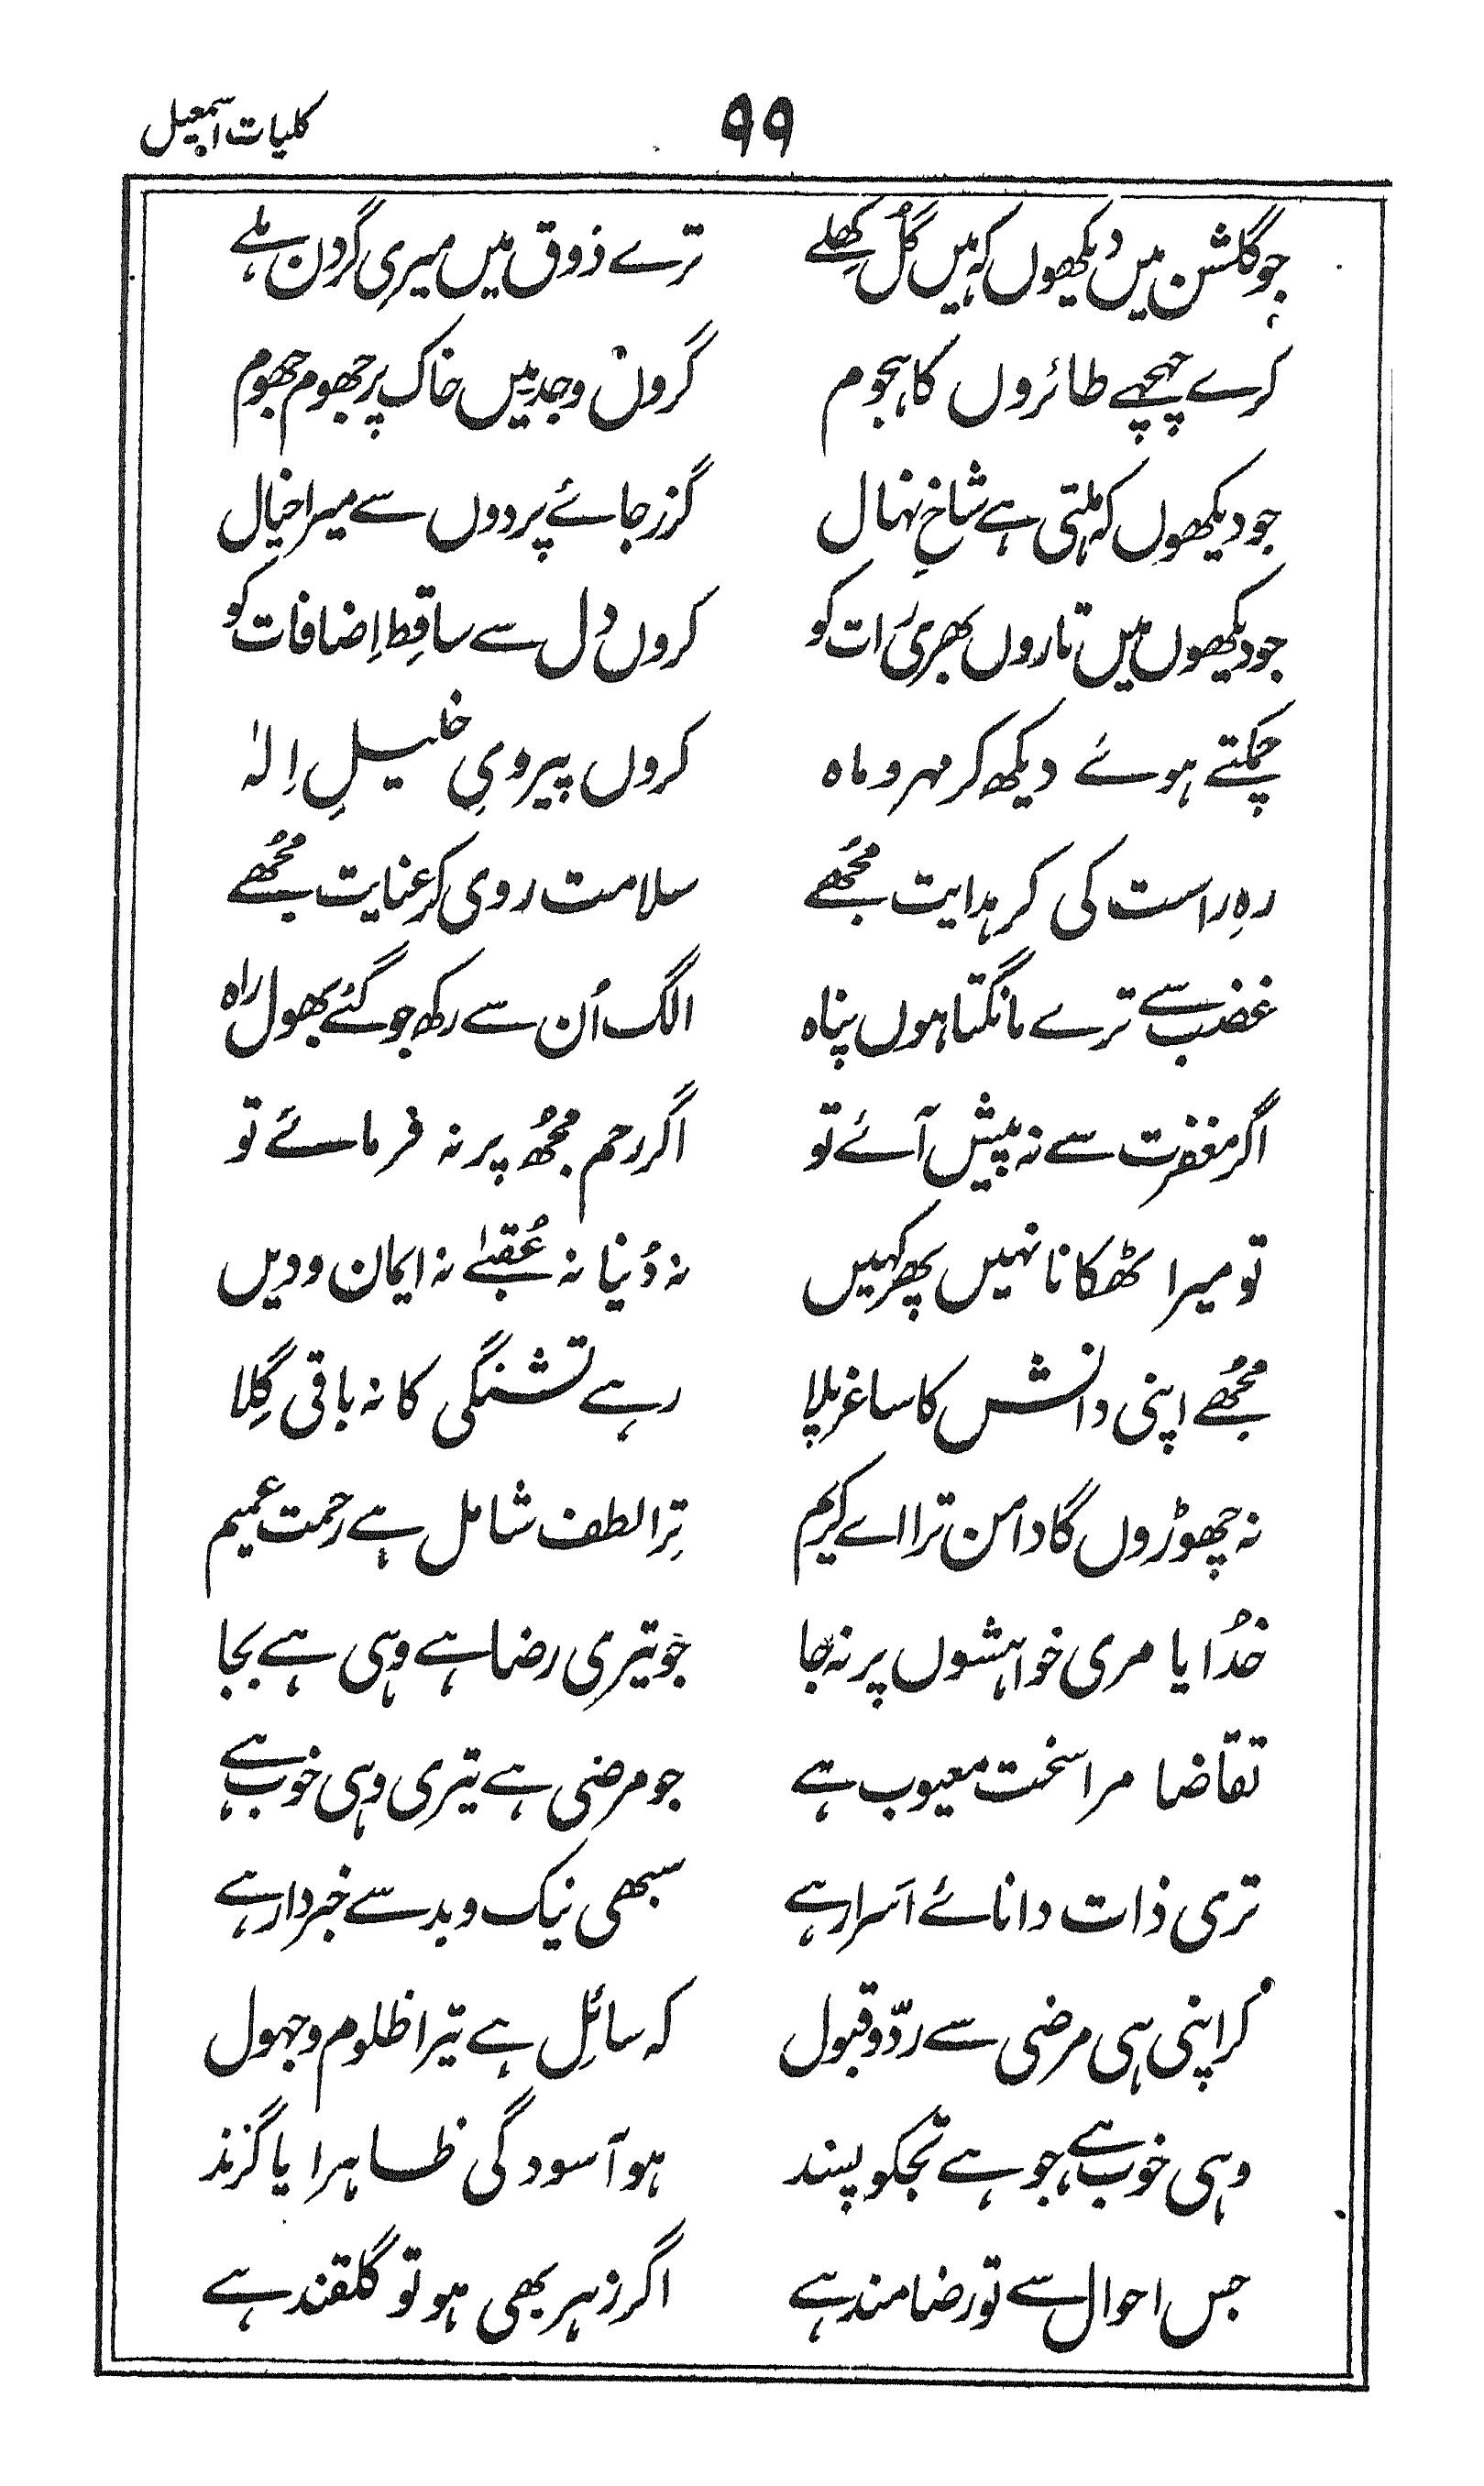 کلیات اسمٰعیل
۹۹
جو گلشن میں دیکھوں کہ ہیں گُل کھِلے ترے ذوق میں میری گردن ہلے
کرے چہچہے طائروں کا ہجوم گروں وجد میں خاک پر جھوم جھوم
جو دیکھوں کہ ہلتی ہے شاخِ نہال گزر جائے پردوں سے میرا خیال
جو دیکھوں میں تاروں بھری رات کو کروں دل سے ساقِط اِضافات کو
چمکتے ہوئے دیکھ کر مہر و ماہ کروں پیرویِ خلیلِ اِلہٰ
رہِ راست کی کر ہدایت مجُھے سلامت روی کر عنایت مجُھے
غضب سے ترے مانگتا ہوں پناہ الگ اُن سے رکھ جو گئے بھول راہ
اگر مغفرت سے نہ پیش آئے تو اگر رحم مجُھ پر نہ فرمائے تو
تو میرا ٹھکانا نہیں پھر کہیں نہ دُنیا نہ عُقبےٰ نہ ایمان و دیں
مجُھے اپنی دانش کا ساغر پلا رہے تشنگی کا نہ باقی گِلا
نہ چھوڑوں گا دامن ترا اے کریم تِرا لطف شامل ہے رحمت عمیم
خدُایا مری خواہشوں پر نہ جا جو تیری رضا ہے وہی ہے بجا
تقاضا مرا سخت معیوب ہے جو مرضی ہے تیری وہی خوب ہے
تری ذات دانائے اَسرار ہے سبھی نیک و بد سے خبردار ہے
کر اپنی ہی مرضی سے ردّ و قبول کہ سائِل ہے تیرا ظلوم و جہول
وہی خوب ہے جو ہے تجکو پسند ہو آسودگی ظاہرا یا گزند
جس احوال سے تو رضامند ہے اگر زہر بھی ہو تو گلقند ہے